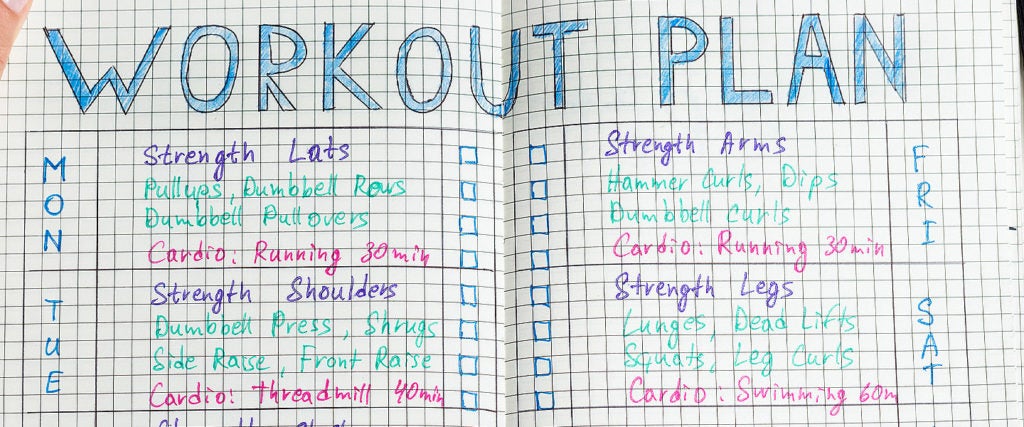 WORKOUT PLAN
MON
Strength Lats
Pullups, Dumbbell Rows
Dumbbell Pullovers
Cardio: Running 30min
TUE
Strength Shoulders
Dumbbell Press, Shrugs
Side Raise, Front Raise
Cardio: threadmill 40min
Strength Arms
Hammer Curls, Dips
Dumbbell Curls
Cardio: Running 30min
FRI
Strength Legs
Lunges, Dead Lifts
Squats, Leg Curls
Cardio: Swimming 60m
SAT